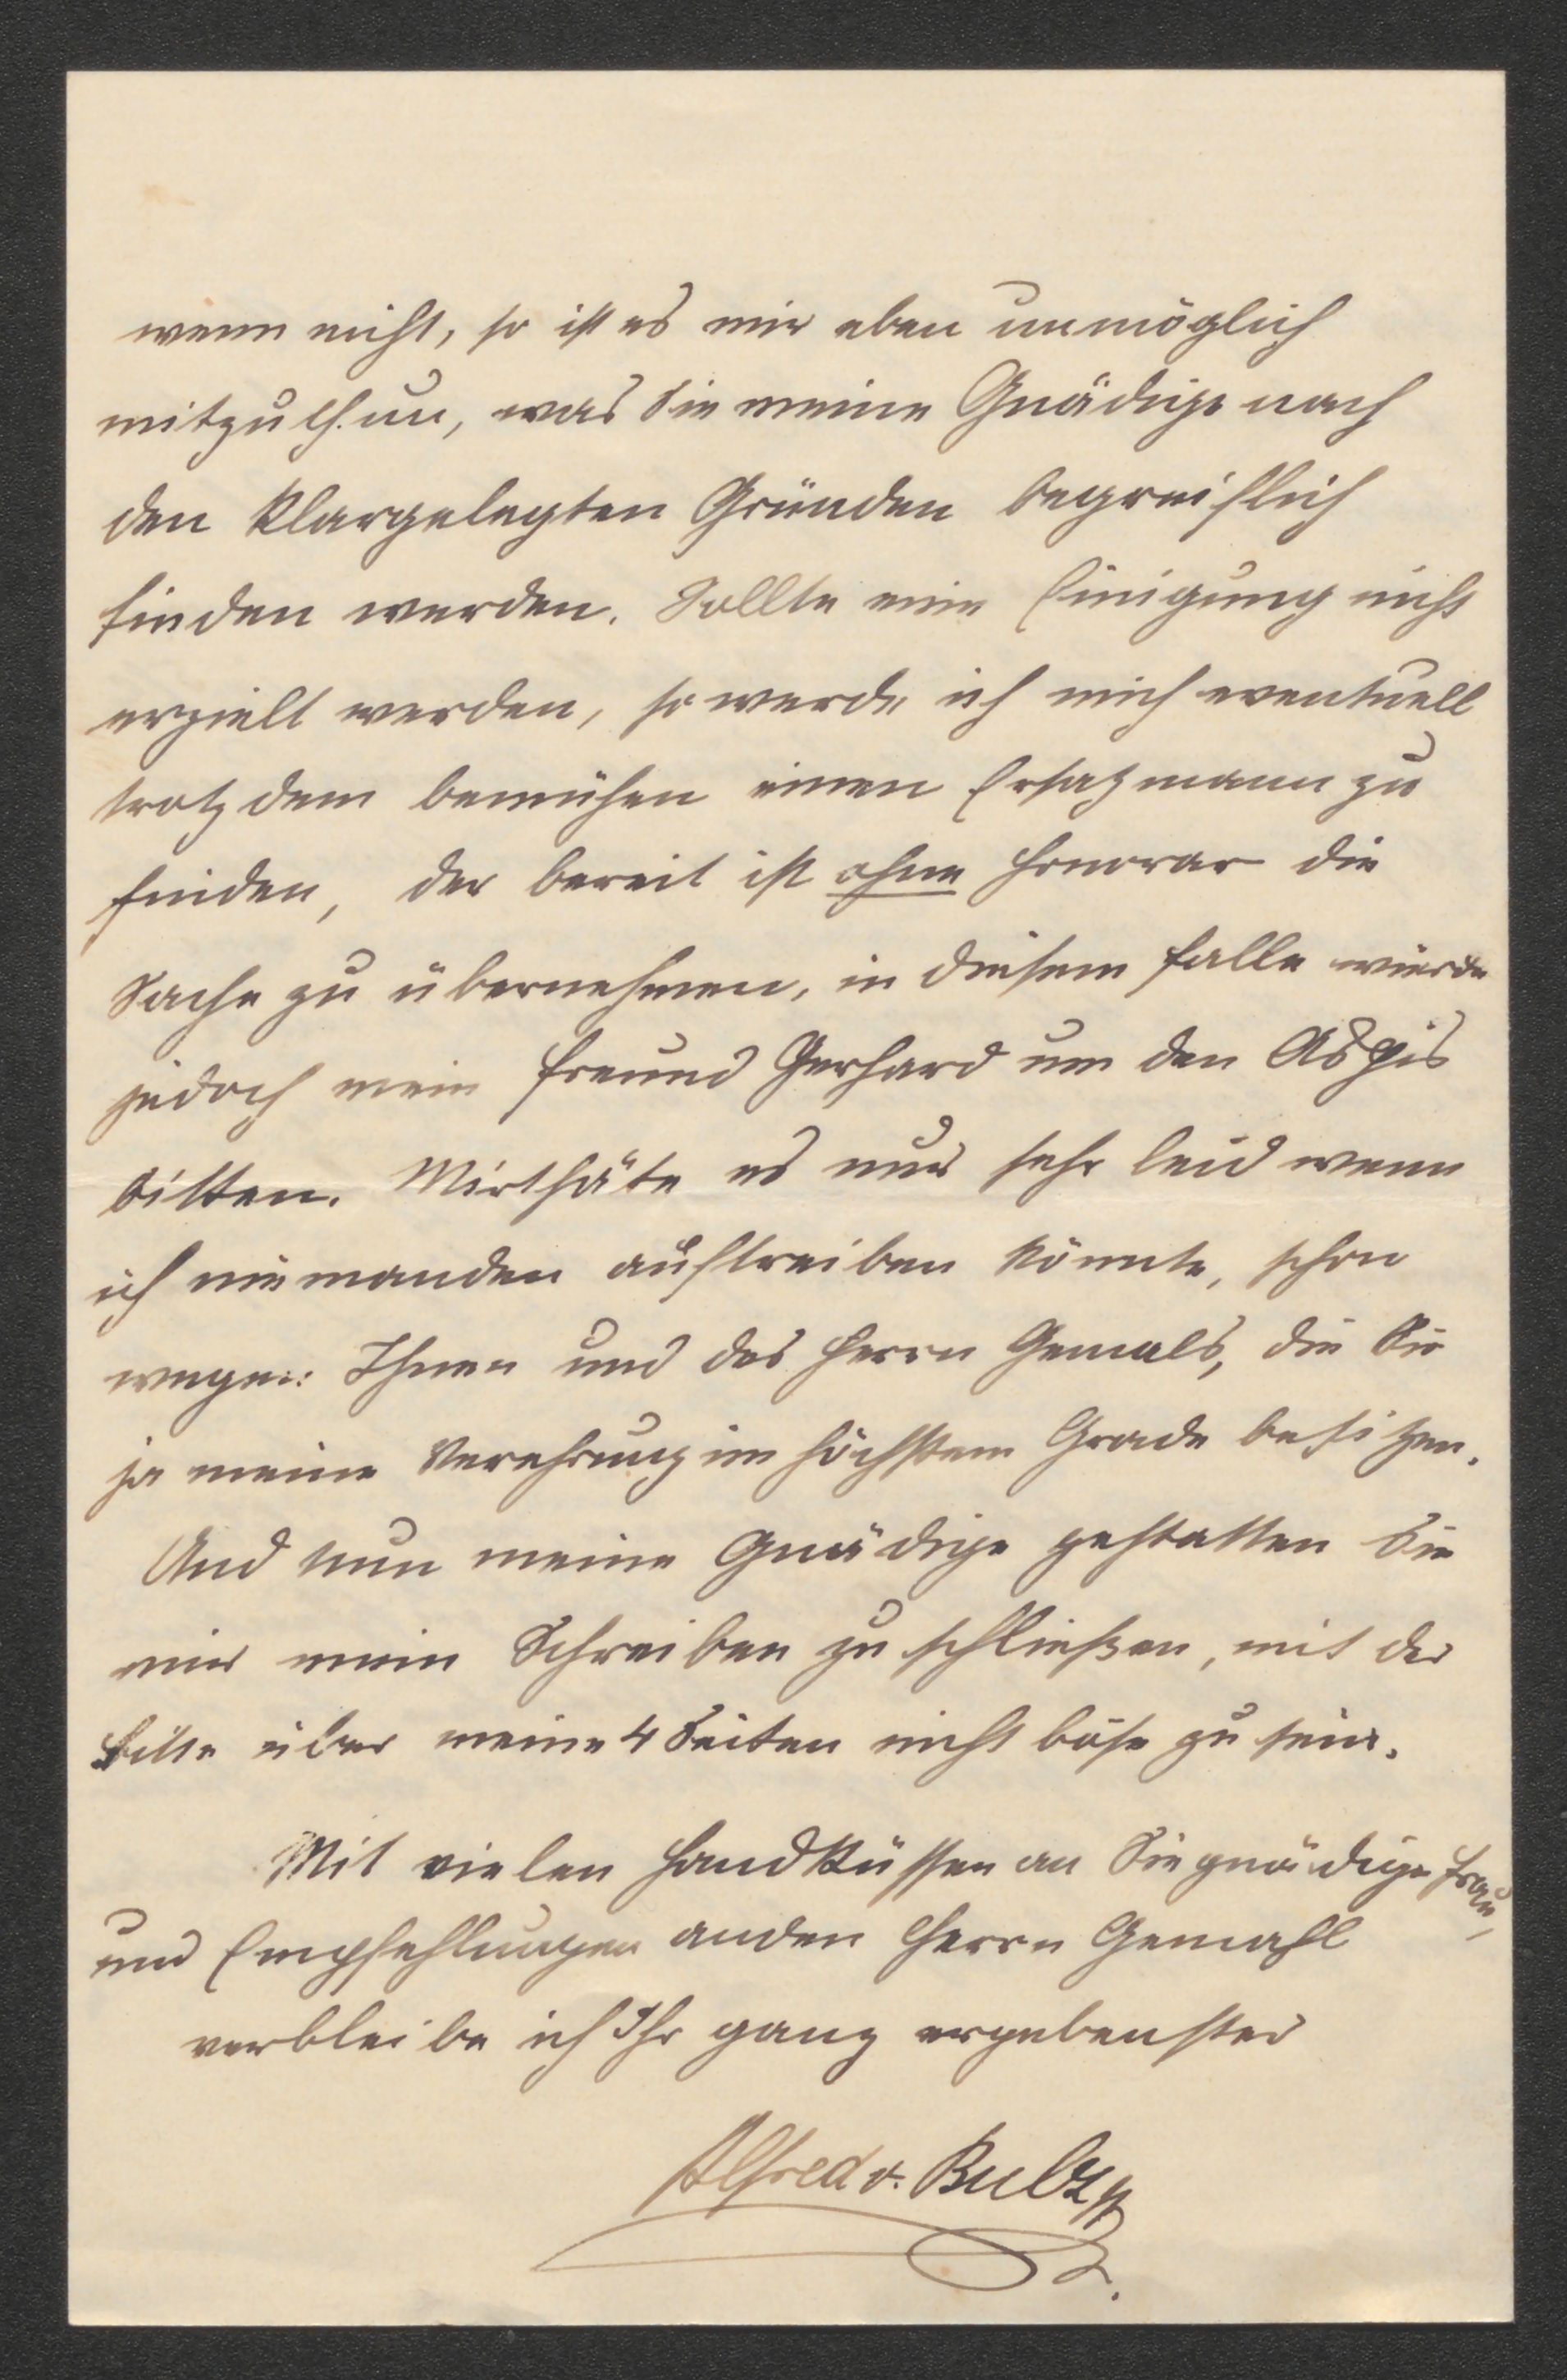 wenn nicht, so ist es mir eben unmöglich
mitzuthun, was Sie meine Gnädige nach
den klargelegten Gründen begreiflich
finden werden. Sollte eine Einigung nicht
erzielt werden, so werde ich mich eventuell
trotzdem bemühen einen Ersatzmann zu
finden, der bereit ist ohne Honorar die
Sache zu übernehmen, in diesem Falle würde
jedoch mein Freund Gerhard um den Aspis
bitten. Mir thäte es nur sehr leid wenn
ich niemanden auftreiben könnte, schon
wegen Ihnen und des Herrn Gemals, die Sie
ja meine Verehrung im höchstem Grade besitzen.
Und nun meine Gnädige gestatten Sie
mir mein Schreiben zu schließen, mit der
Bitte über meine 4 Seiten nicht böse zu sein.
Mit vielen Handküssen an Sie gnädige Frau,
und Empfehlungen an den Herrn Gemahl
verbleibe ich Ihr ganz ergebenster
Alfred v.